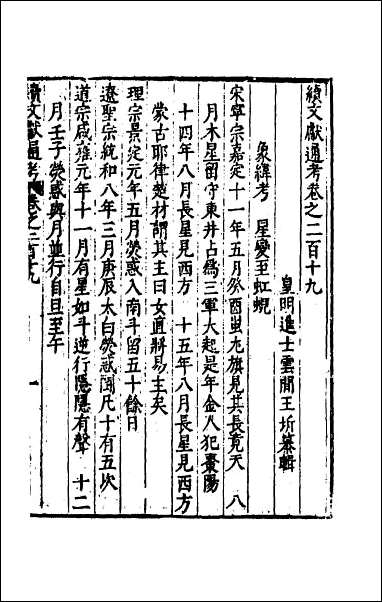 續文獻通考卷之二百十九
皇明進士雲間王圻纂輯
象緯考　星變至虹蜺
宋寧宗嘉定十一年五月癸酉蚩尤旗見其長竟天　八
月木星留守東井占爲三軍大起是年金人犯棗陽
十四年八月長星見西方　十五年八月長星見西方
蒙古耶律楚材謂其主曰女直將易主矣
理宗景定元年五月熒惑入南斗留五十餘日
遼聖宗統和八年三月庚辰太白熒惑鬭凡十有五次
道宗咸雍元年十一月有星如斗逆行隱隱有聲　十二
月壬子熒惑與月並行自旦至午
續文獻通考　卷之二百十九　一